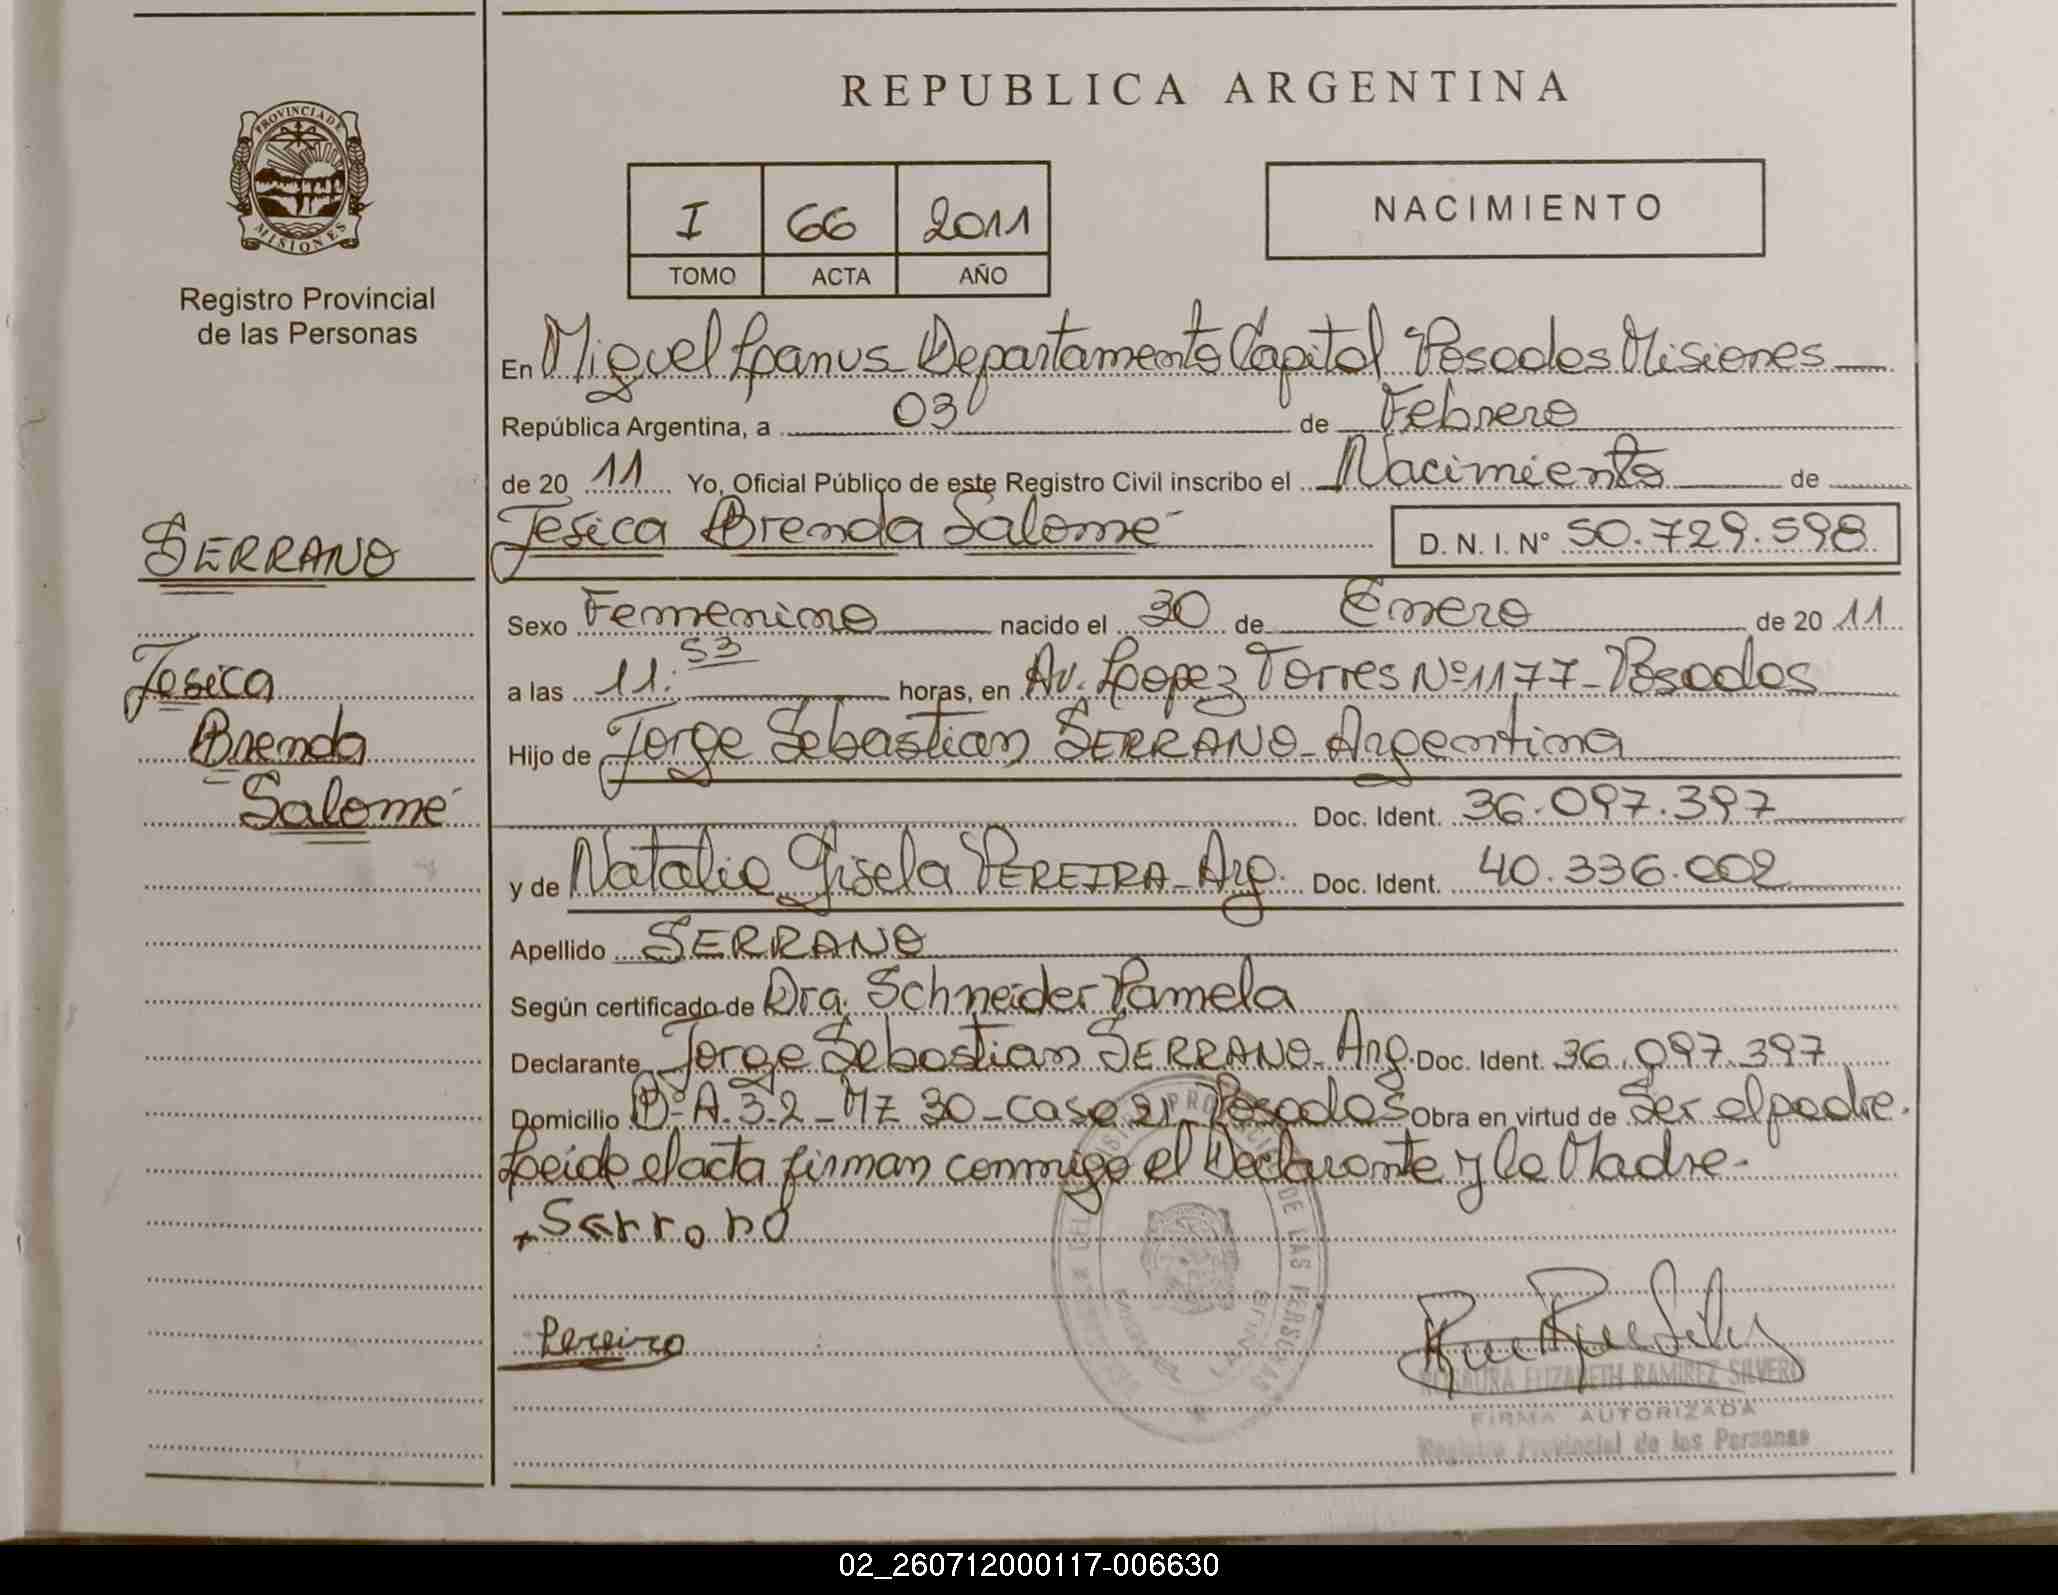 REPUBLICA ARGENTINA
PROVINCIA DE
MISIONES
Registro Provincial
de las Personas
I 66 2011
TOMO ACTA AÑO
NACIMIENTO
En Miguel Lanus Departamento Capital Posadas Misiones
República Argentina, a 03 de Febrero
de 20 11 Yo, Oficial Público de este Registro Civil inscribo el Nacimiento de
Jesica Brenda Salomé D. N. I. Nº 50.729.598
SERRANO
Jesica
Brenda
Salomé
Sexo Femenino nacido el 30 de Enero de 20 11
a las 11:53 horas, en Av. Lopez Torres Nº 1177-Posadas
Hijo de Jorge Sebastian SERRANO-Argentina
Doc. Ident. 36.097.397
y de Natalia Gisela PEREIRA-Arg. Doc. Ident. 40.336.002
Apellido SERRANO
Según certificado de Dra. Schneider Pamela
Declarante Jorge Sebastian SERRANO-Arg. Doc. Ident. 36.097.397
Domicilio Bº A.3.2-Mz 30-casa 21-Posadas Obra en virtud de Ser el padre.
Leida el acta firman conmigo el Declarante y la Madre-
Serrano
Pereira
ROSAURA ELIZABETH RAMIREZ SILVERO
FIRMA AUTORIZADA
Registro Provincial de las Personas
02_260712000117-006630